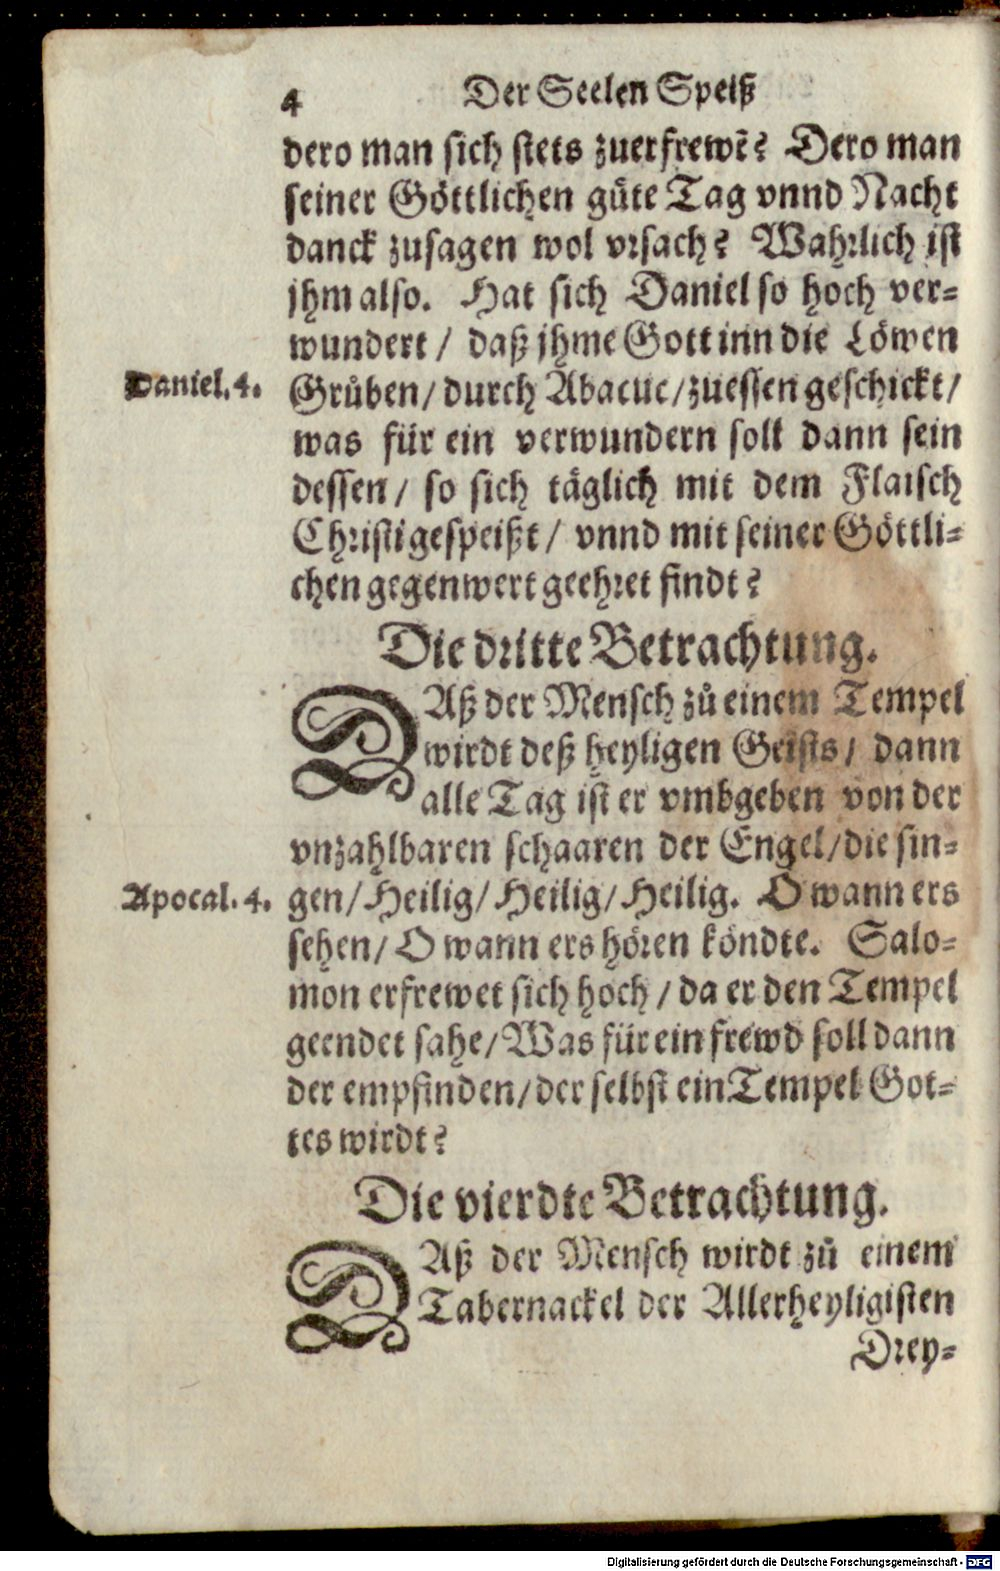 4 Der Seelen Speiß
dero man sich stets zuerfrewẽ? Dero man
seiner Göttlichen güte Tag vnnd Nacht
danck zusagen wol vrsach? Wahrlich ist
jhm also. Hat sich Daniel so hoch ver-
wundert / daß jhme Gott inn die Löwen
Daniel. 4.
Grůben / durch Abacuc / zuessen geschickt /
was für ein verwundern soll dann sein
dessen / so sich täglich mit dem Flaisch
Christi gespeißt / vnnd mit seiner Göttli-
chen gegenwert geehret findt?
Die dritte Betrachtung.
DAß der Mensch zů einem Tempel
wirdt deß heyligen Geists / dann
alle Tag ist er vmbgeben von der
vnzahlbaren schaaren der Engel / die sin-
Apocal. 4.
gen / Heilig / Heilig / Heilig. O wann ers
sehen / O wann ers hören köndte. Salo-
mon erfrewet sich hoch / da er den Tempel
geendet sahe / Was für ein frewd soll dann
der empfinden / der selbst ein Tempel Got-
tes wirdt?
Die vierdte Betrachtung.
DAß der Mensch wirdt zů einem
Tabernackel der Allerheyligisten
Drey-
Digitalisierung gefördert durch die Deutsche Forschungsgemeinschaft - DFG